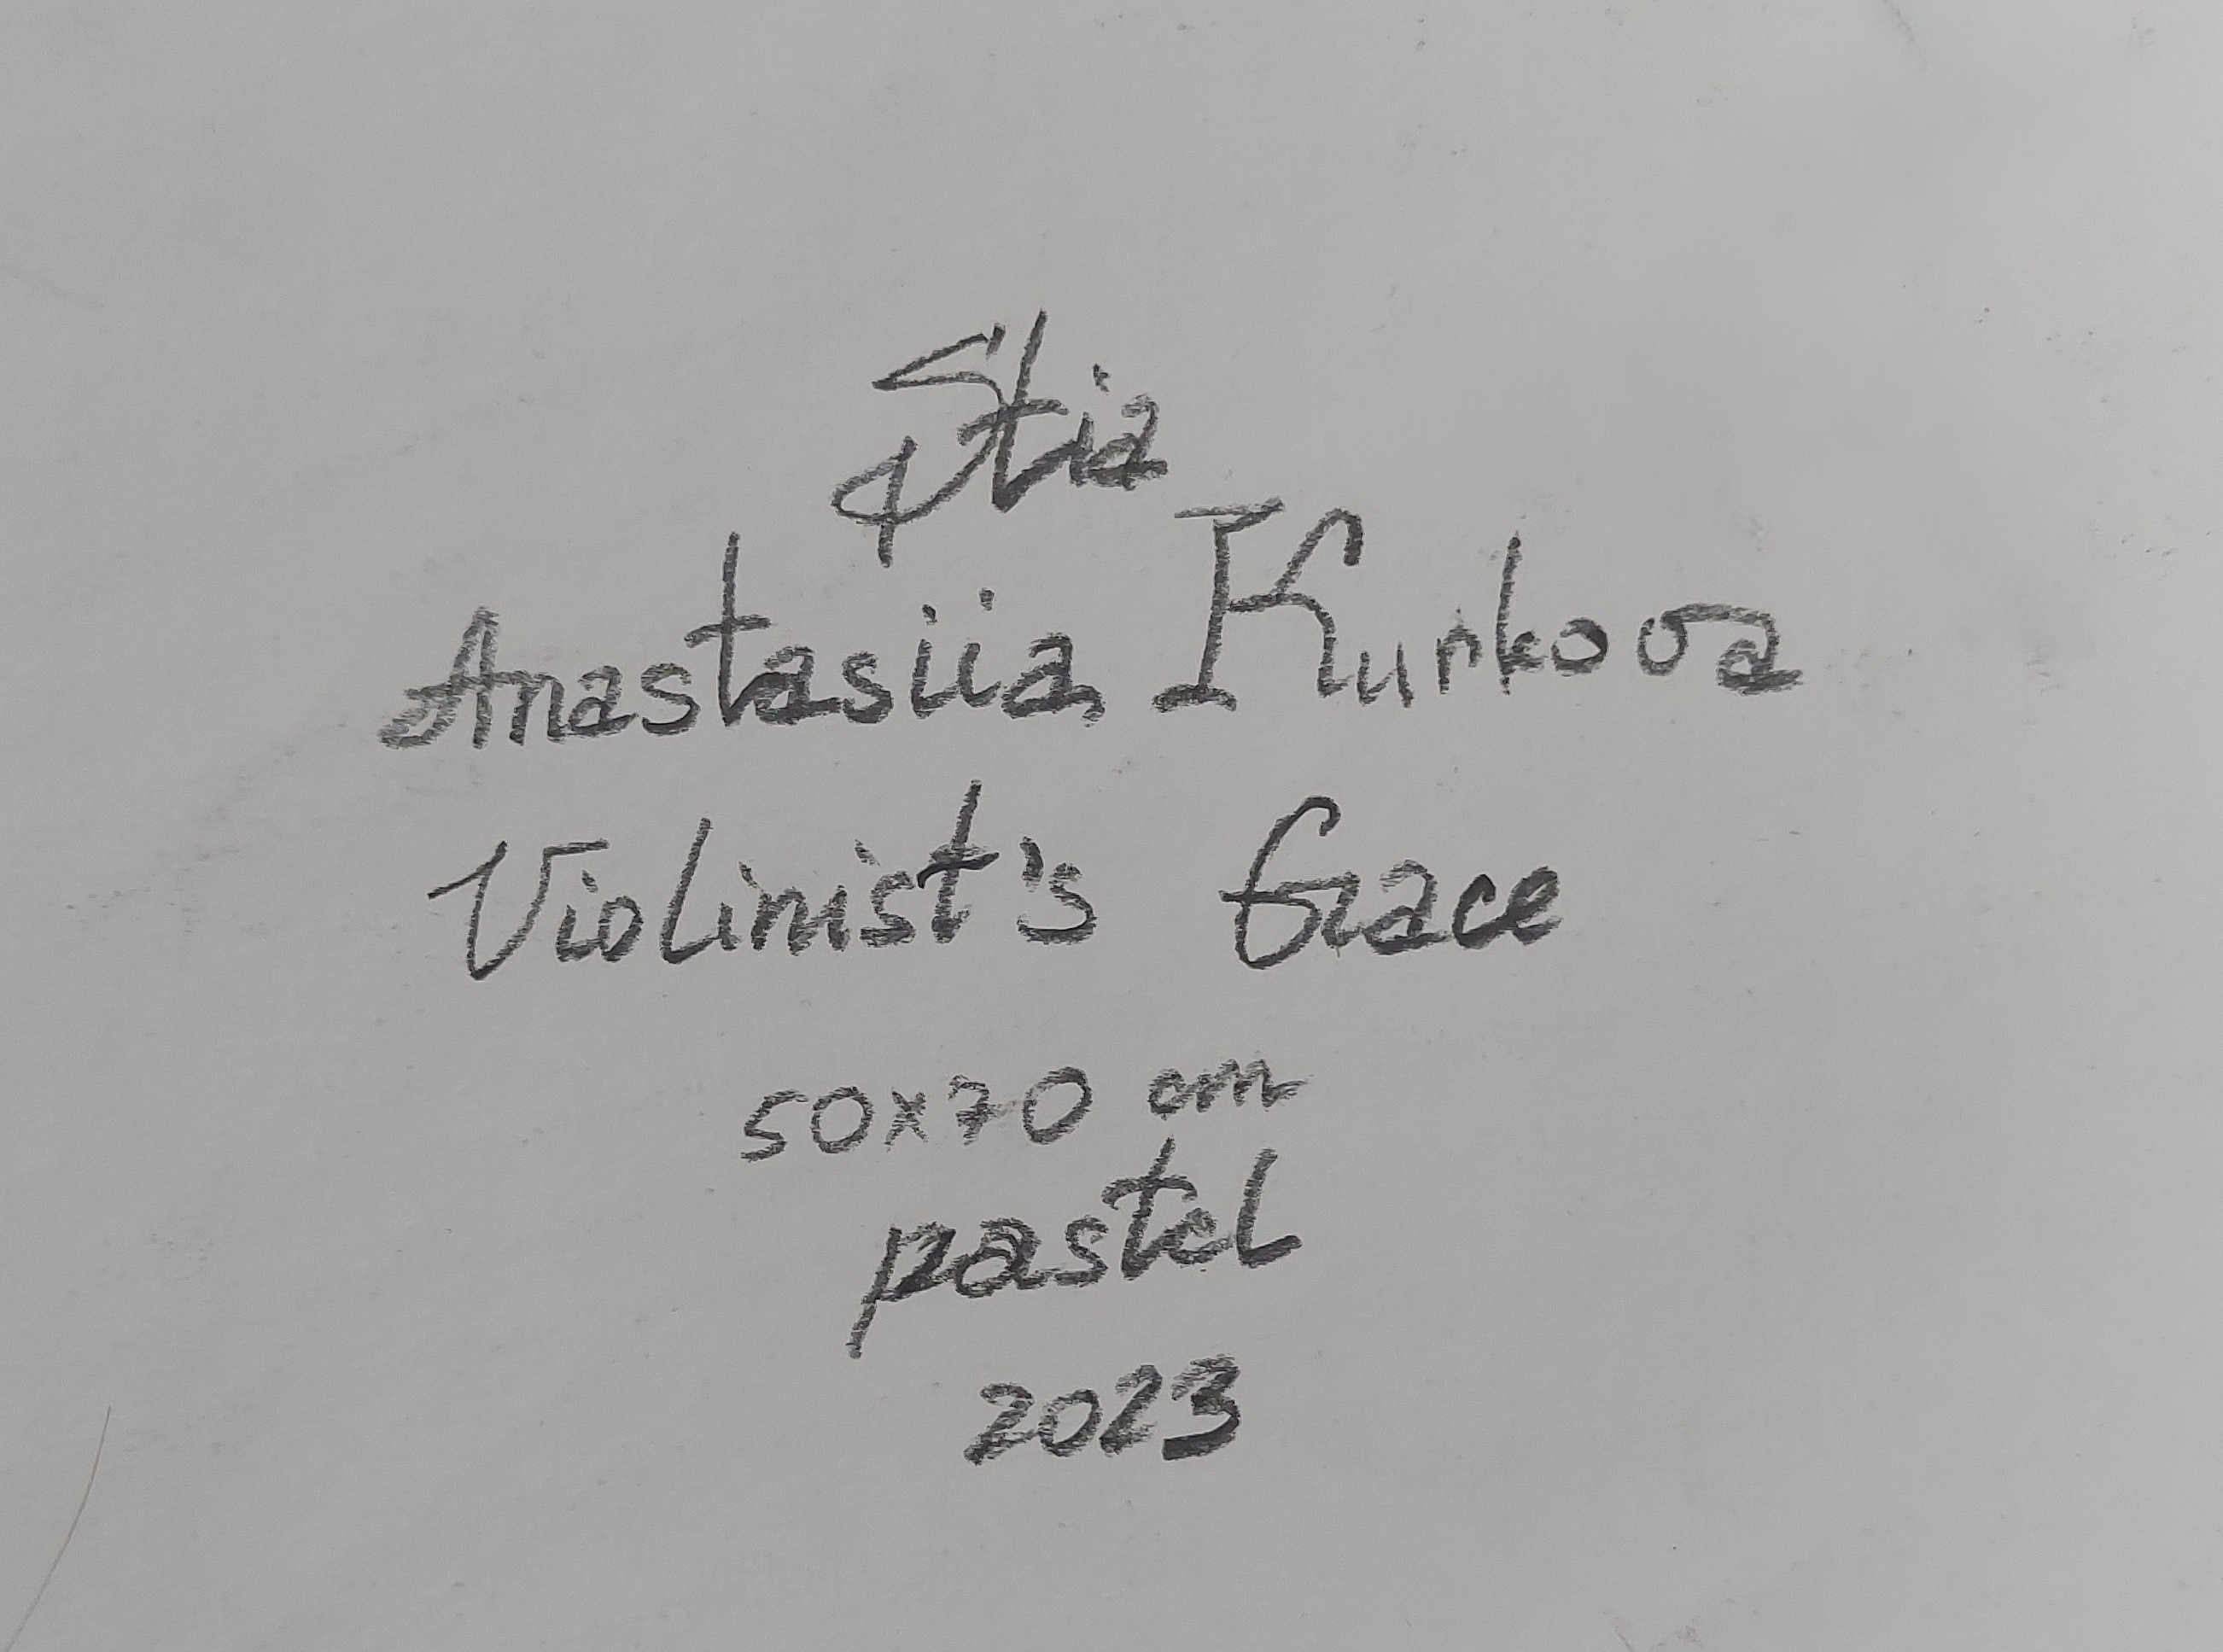 Stia
Anastasiia Kurkova
Violinist's Grace
50x70 cm
pastel
2023